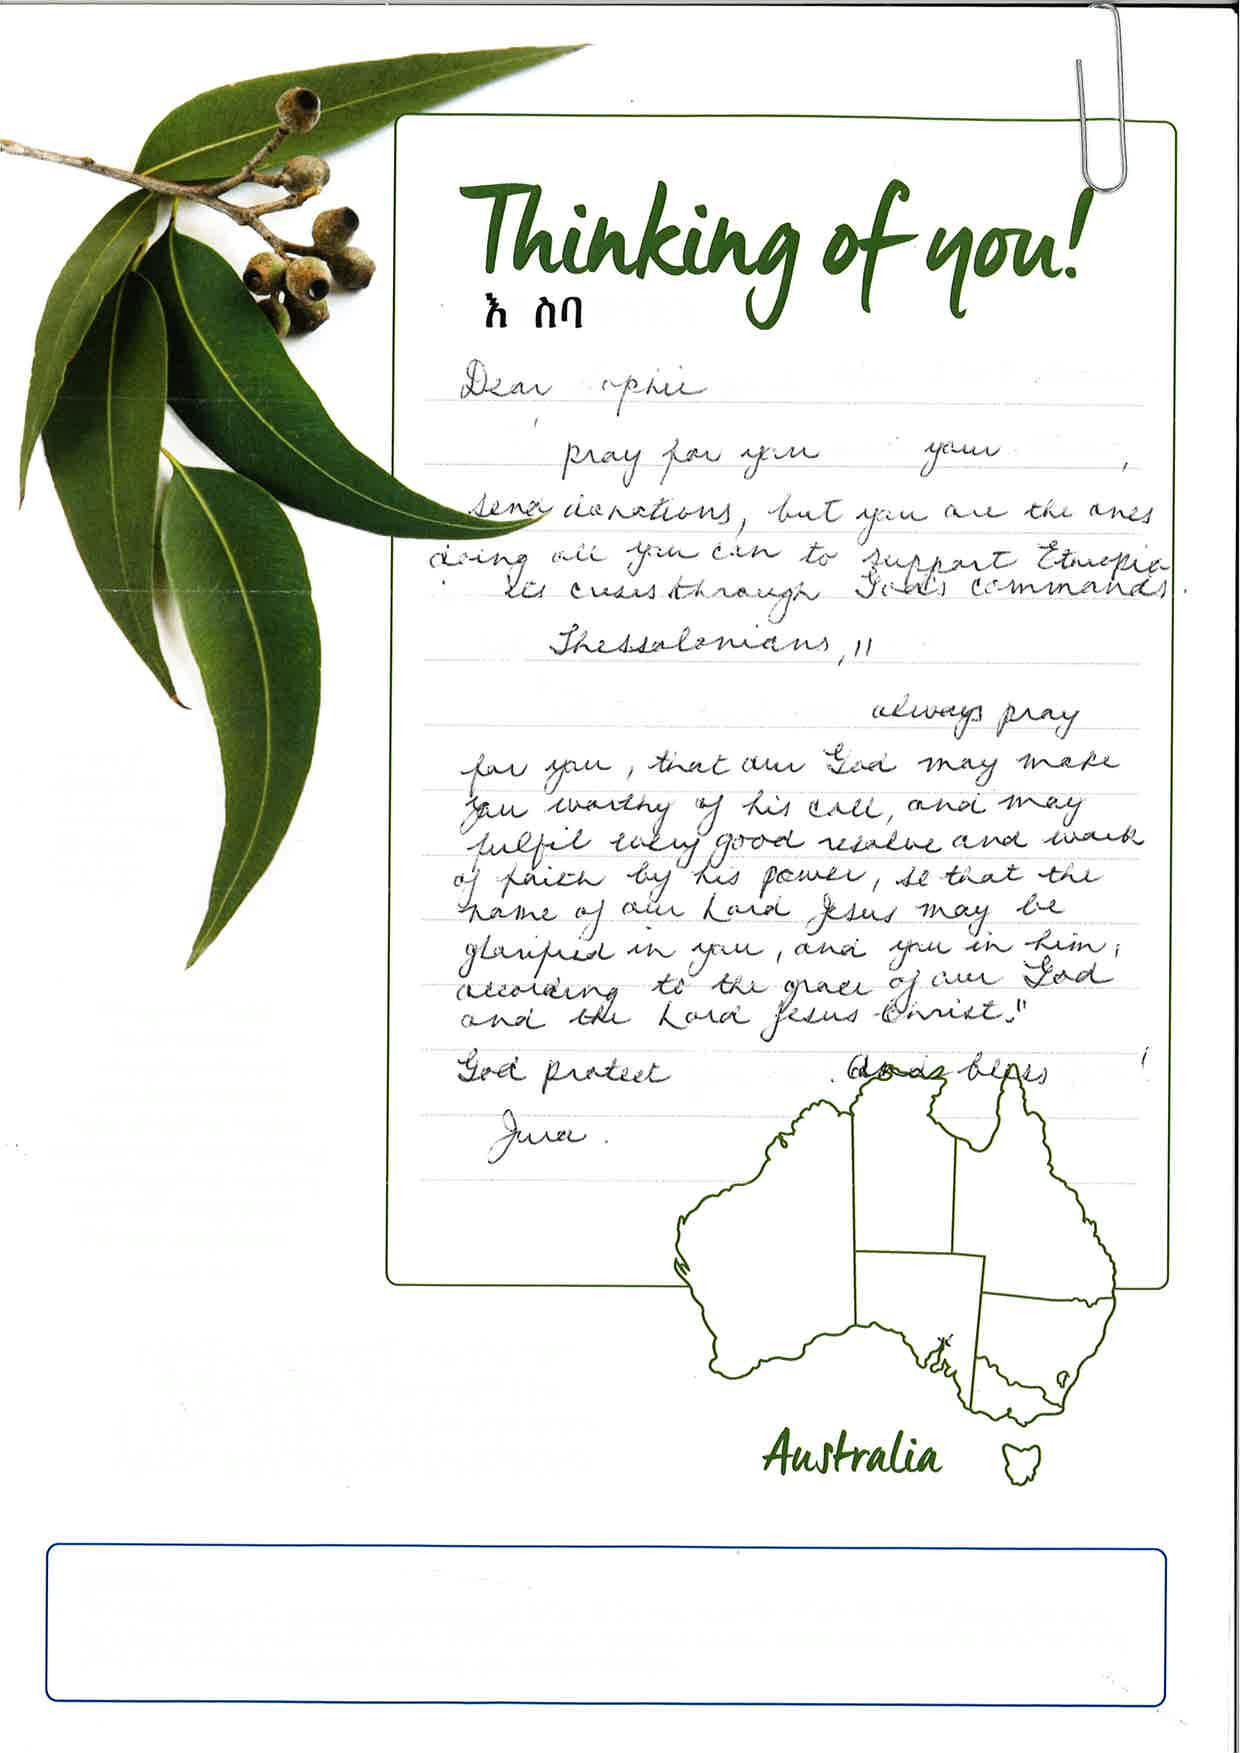 Thinking of you!
እ ስባ
Dear ophie
pray for you your ,
send donations, but you are the ones
doing all you can to support Ethiopia
its crisis through God's commands.
Thessalonians, 11
always pray
for you, that our God may make
you worthy of his call, and may
fulfil every good resolve and work
of faith by his power, so that the
name of our Lord Jesus may be
glorified in you, and you in him,
according to the grace of our God
and the Lord Jesus Christ."
God protect and bless !
Australia